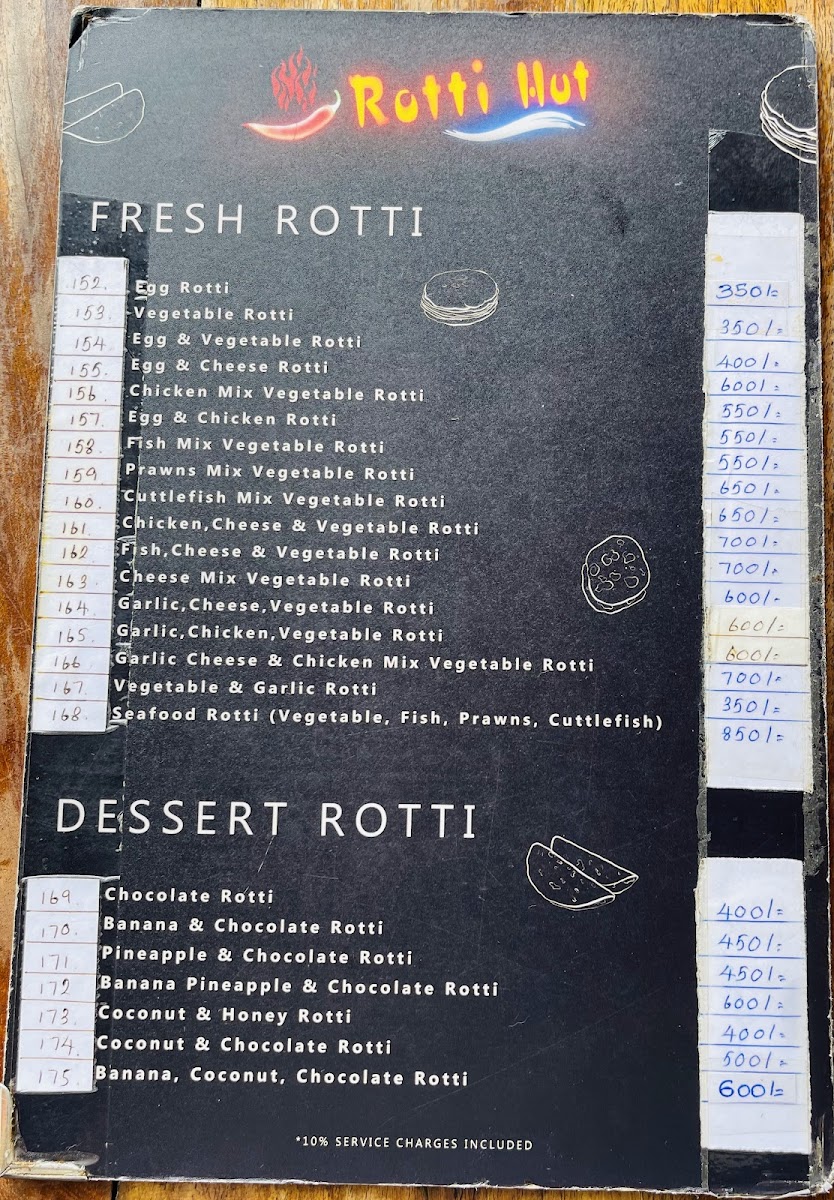 Rotti Hut
FRESH ROTTI
152. Egg Rotti 350/=
153. Vegetable Rotti 350/=
154. Egg & Vegetable Rotti 400/=
155. Egg & Cheese Rotti 600/=
156. Chicken Mix Vegetable Rotti 550/=
157. Egg & Chicken Rotti 550/=
158. Fish Mix Vegetable Rotti 550/=
159 Prawns Mix Vegetable Rotti 650/=
160. Cuttlefish Mix Vegetable Rotti 650/=
161. Chicken,Cheese & Vegetable Rotti 700/=
162. Fish,Cheese & Vegetable Rotti 700/=
163. Cheese Mix Vegetable Rotti 600/=
164. Garlic,Cheese,Vegetable Rotti 600/=
165. Garlic,Chicken,Vegetable Rotti 600/=
166 Garlic Cheese & Chicken Mix Vegetable Rotti 700/=
167. Vegetable & Garlic Rotti 350/=
168. Seafood Rotti (Vegetable, Fish, Prawns, Cuttlefish) 850/=
DESSERT ROTTI
169. Chocolate Rotti 400/=
170. Banana & Chocolate Rotti 450/=
171. Pineapple & Chocolate Rotti 450/=
172 Banana Pineapple & Chocolate Rotti 600/=
173. Coconut & Honey Rotti 400/=
174. Coconut & Chocolate Rotti 500/=
175. Banana, Coconut, Chocolate Rotti 600/=
*10% SERVICE CHARGES INCLUDED